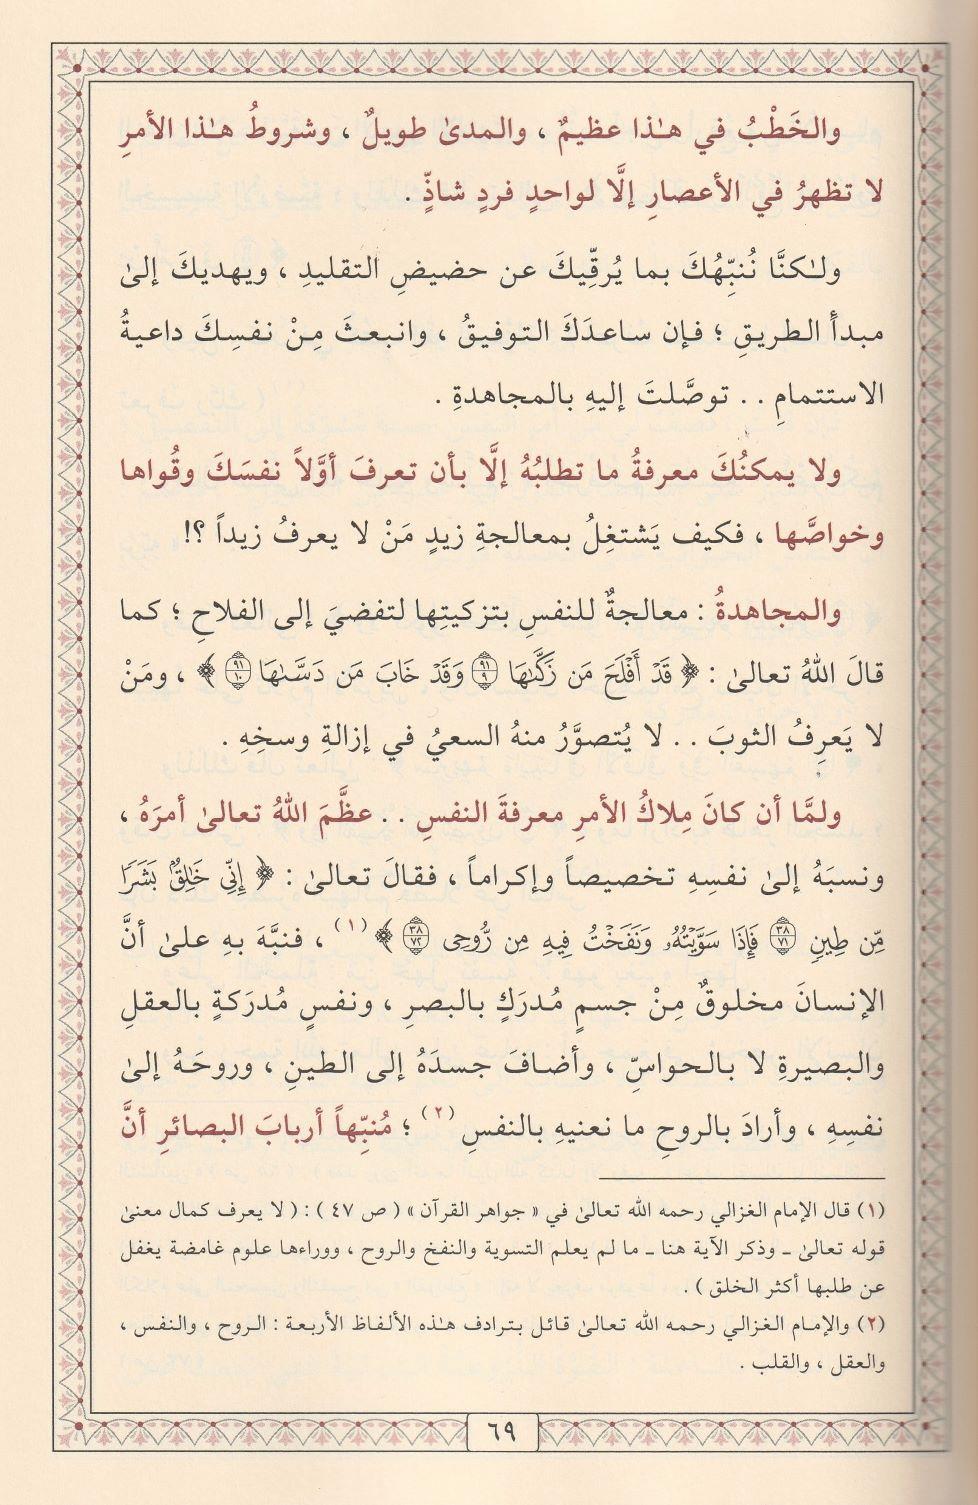 والخَطْبُ في هـٰذا عظيمٌ ، والمدىٰ طويلٌ ، وشروطُ هـٰذا الأمرِ
لا تظهرُ في الأعصارِ إلَّا لواحدٍ فردٍ شاذٍّ .
ولـٰكنَّا نُنبِّهُكَ بما يُرقِّيكَ عن حضيضِ التقليدِ ، ويهديكَ إلىٰ
مبدأِ الطريقِ ؛ فإن ساعدَكَ التوفيقُ ، وانبعثَ مِنْ نفسِكَ داعيةُ
الاستتمامِ . . توصَّلتَ إليهِ بالمجاهدةِ .
ولا يمكنُكَ معرفةُ ما تطلبُهُ إلَّا بأن تعرفَ أوَّلاً نفسَكَ وقُواها
وخواصَّها ، فكيف يَشتغِلُ بمعالجةِ زيدٍ مَنْ لا يعرفُ زيداً ؟!
والمجاهدةُ : معالجةٌ للنفسِ بتزكيتِها لتفضيَ إلى الفلاحِ ؛ كما
قالَ اللهُ تعالىٰ : ﴿ قَدْ أَفْلَحَ مَن زَكَّىٰهَا ٩١ ٩ وَقَدْ خَابَ مَن دَسَّىٰهَا ٩١ ١٠ ﴾ ، ومَنْ
لا يَعرِفُ الثوبَ . . لا يُتصوَّرُ منهُ السعيُ في إزالةِ وسخِهِ .
ولمَّا أن كانَ مِلاكُ الأمرِ معرفةَ النفسِ . . عظَّمَ اللهُ تعالىٰ أمرَهُ ،
ونسبَهُ إلىٰ نفسِهِ تخصيصاً وإكراماً ، فقالَ تعالىٰ : ﴿ إِنِّي خَٰلِقٌۢ بَشَرًا
مِّن طِينٍ ٣٨ ٧١ فَإِذَا سَوَّيْتُهُۥ وَنَفَخْتُ فِيهِ مِن رُّوحِى ٣٨ ٧٢ ﴾(١) ، فنبَّهَ بهِ علىٰ أنَّ
الإنسانَ مخلوقٌ مِنْ جسمٍ مُدرَكٍ بالبصرِ ، ونفسٍ مُدرَكةٍ بالعقلِ
والبصيرةِ لا بالحواسِّ ، وأضافَ جسدَهُ إلى الطينِ ، وروحَهُ إلىٰ
نفسِهِ ، وأرادَ بالروحِ ما نعنيهِ بالنفسِ (٢) ؛ مُنبِّهاً أربابَ البصائرِ أنَّ
(١) قال الإمام الغزالي رحمه الله تعالىٰ في « جواهر القرآن » ( ص ٤٧ ) : ( لا يعرف كمال معنىٰ
قوله تعالىٰ ـ وذكر الآية هنا ـ ما لم يعلم التسوية والنفخ والروح ، ووراءها علوم غامضة يغفل
عن طلبها أكثر الخلق ) .
(٢) والإمام الغزالي رحمه الله تعالىٰ قائل بترادف هـٰذه الألفاظ الأربعة : الروح ، والنفس ،
والعقل ، والقلب .
٦٩